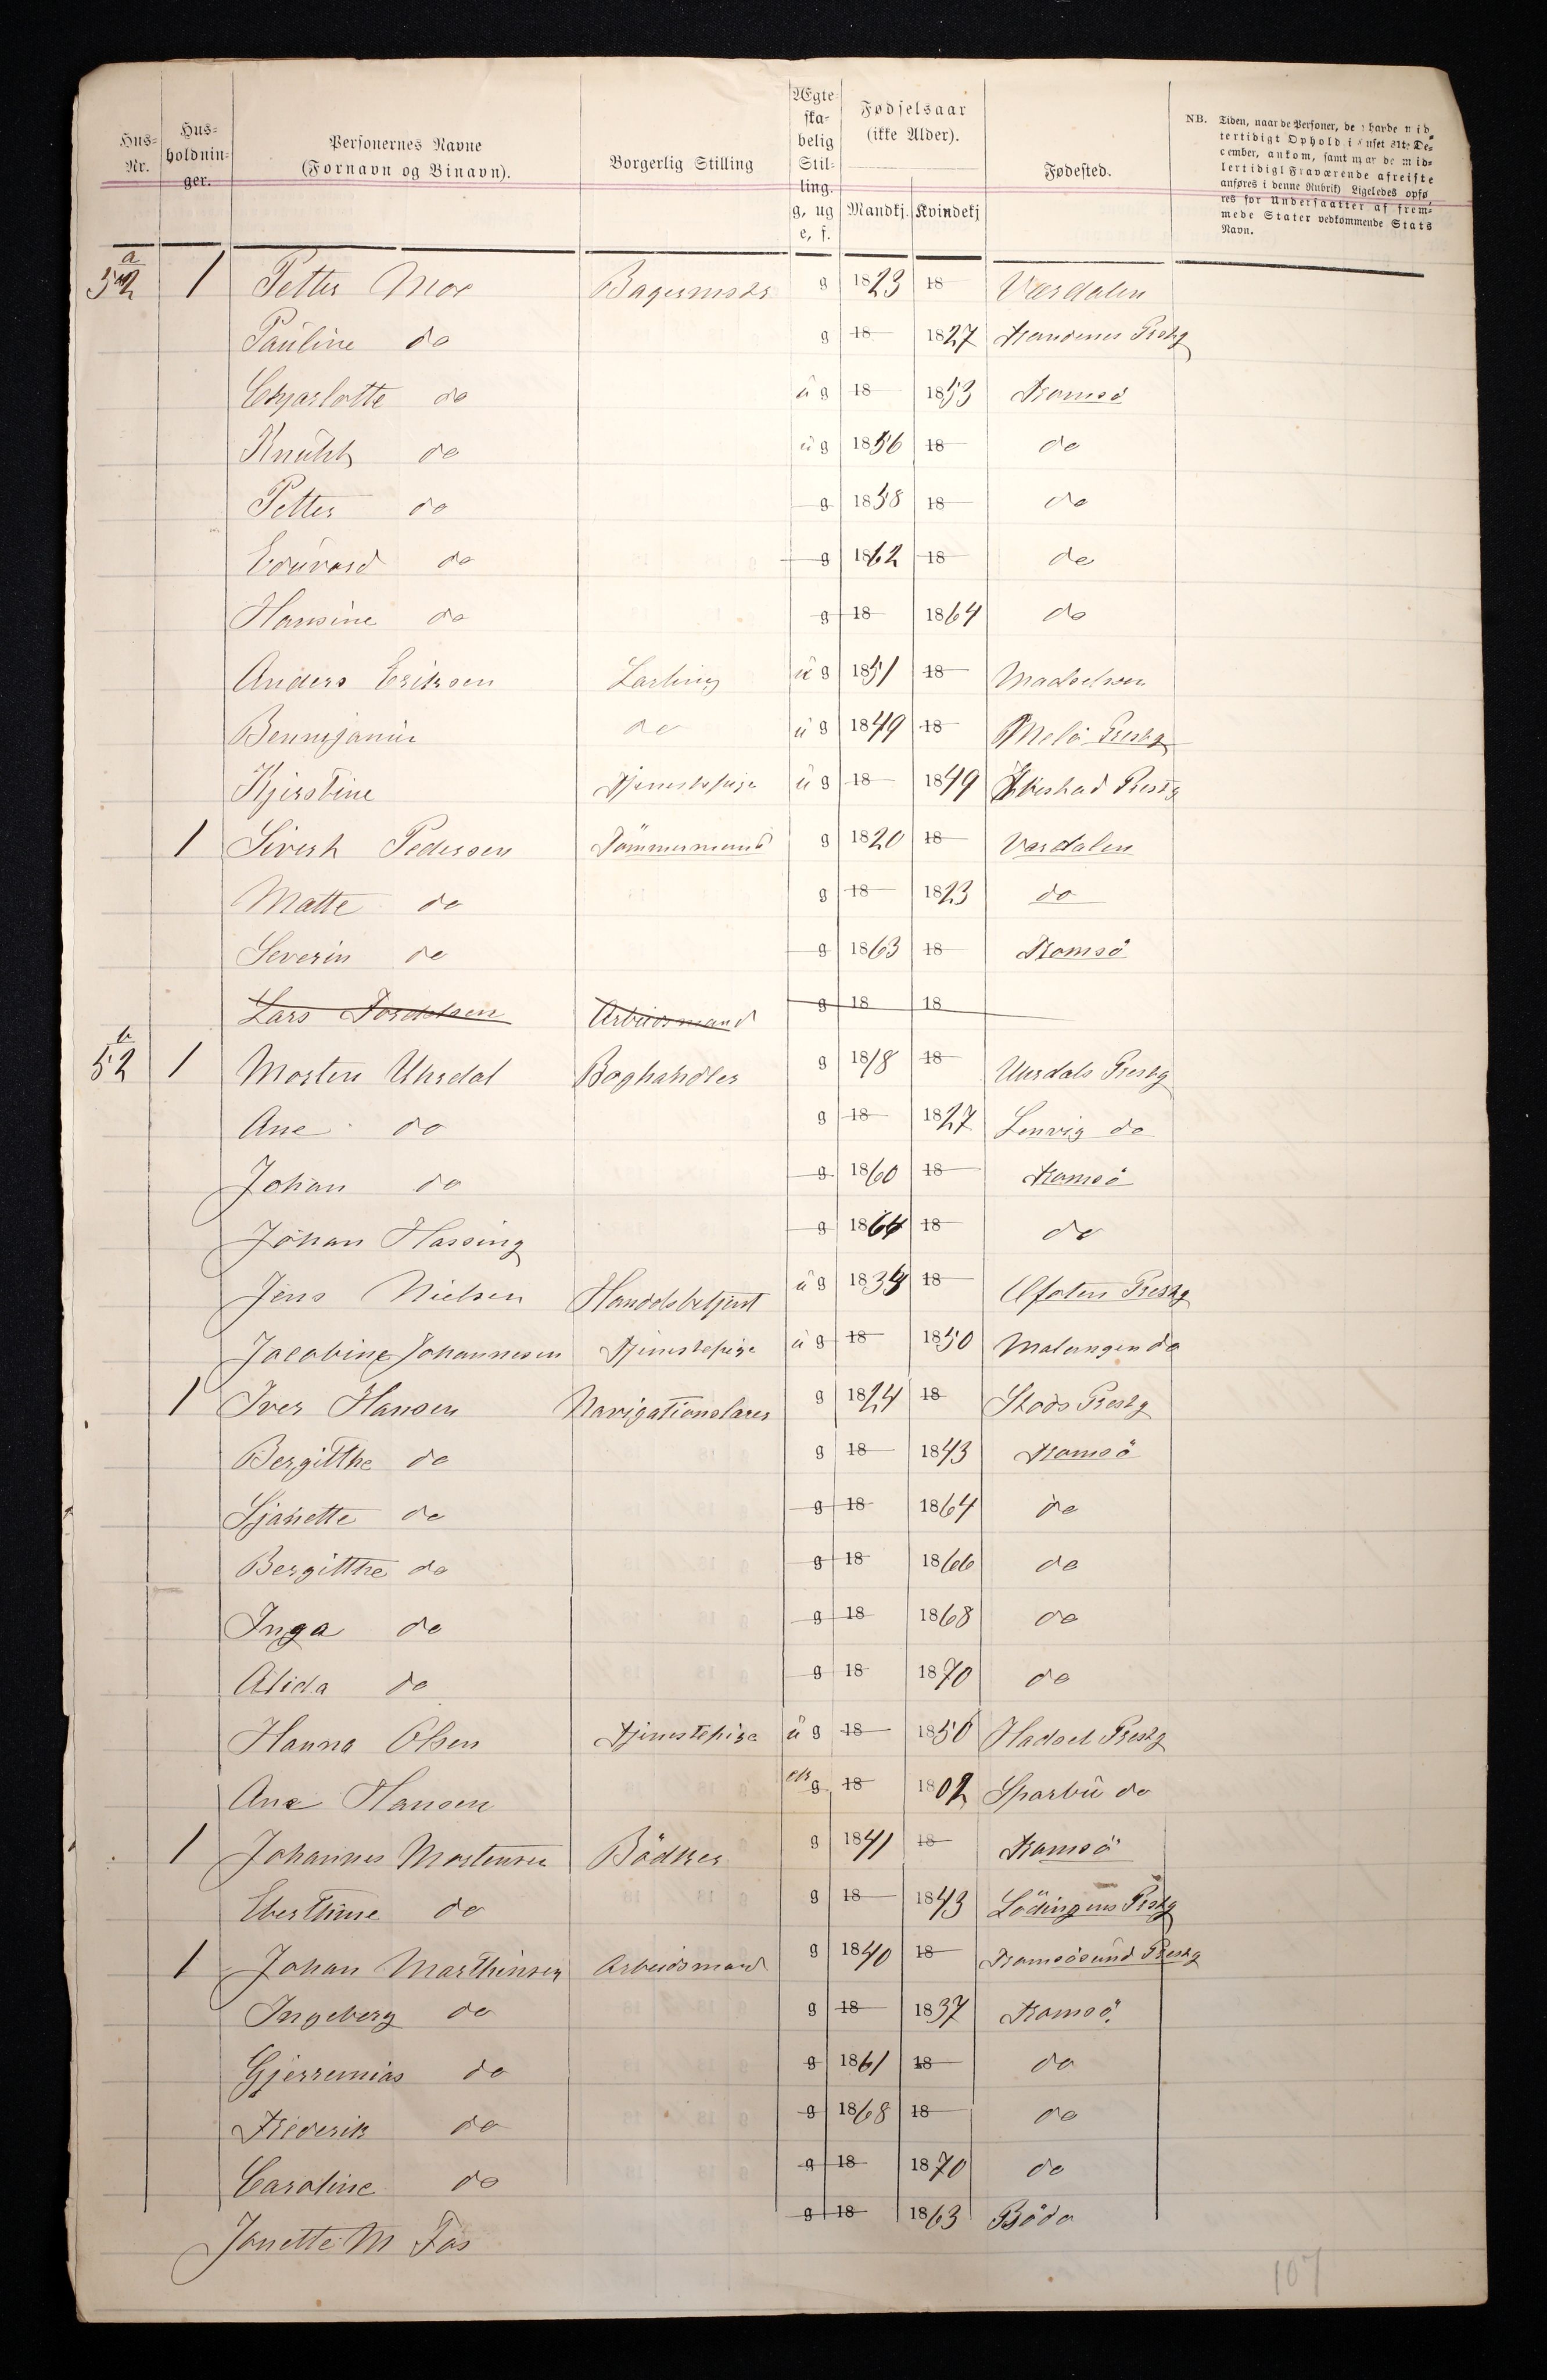 Hus-Nr. Hus-holdnin-ger. Personernes Navne (Fornavn og Binavn). Borgerlig Stilling Ægte-ska-belig Stil-ling. g, ug e, f. Fødselsaar (ikke Alder). Mandkj. Kvindekj Fødested.
NB. Tiden, naar de Personer, de havde mid-
tertidigt Ophold i Huset 31te De-
cember, ankom, samt naar de mid-
lertidigt Fraværende afreiste
anføres i denne Rubrik. Ligeledes opfø-
res for Undersaatter af frem-
mede Stater vedkommende Stats
Navn.
52 a 1 Petter Moe Bagermstr g 1823 18 Værdalen
Pauline do g 18 1827 Trondenes Prestg
Chjarlotte do u g 18 1853 Tromsö
Knuht do u g 1856 18 do
Petter do g 1858 18 do
Edüvard do g 1862 18 do
Hansine do g 18 1864 do
Anders Eriksen Lærling u g 1851 18
Bennjamin do u g 1849 18 Melö Prestg
Kjirstine Tjenestepige u g 18 1849 Ibestad Prestg
1 Sivert Pedersen Tömmermand g 1820 18 Værdalen
Matte do g 18 1823 do
Severin do g 1863 18 Tromsö
Lars Arbeidsmand g 18 18
52 b 1 Morten Unsdal Boghandler g 1818 18 Unsdals Prestg
Ane do g 18 1827 Lenvig do
Johan do g 1860 18 Tromsö
Johan Hassing g 1864 18 do
Jens Nielsen Handelsbetjent u g 18 18 Ofoten Prestg
Jacobine Johannesen Tjenestepige u g 18 1850 Malangen do
1 Iver Hansen Navigationslærer g 1824 18 Stods Prestg
Bergitthe do g 18 1843 Tromsö
Sjanette do g 18 1864 do
Bergitthe do g 18 1866 do
Inga do g 18 1868 do
Alida do g 18 1870 do
Hanna Olsen Tjenestepige u g 18 1850 Hadsel Prestg
Ane Hansen g 18 1802 Sparbu do
1 Johannes Mortensen Bödker g 1841 18 Tromsö
Eberthine do g 18 1843 Lödingens Prstg
1 Johan Marthinsen Arbeidsmand g 1840 18 Tromsösund Prestg
Ingeberg do g 18 1837 Tromsö
Gjerremias do g 1861 18 do
Frederik do g 1868 18 do
Caroline do g 18 1870 do
Janette M Fos g 18 1863 Bödo
107